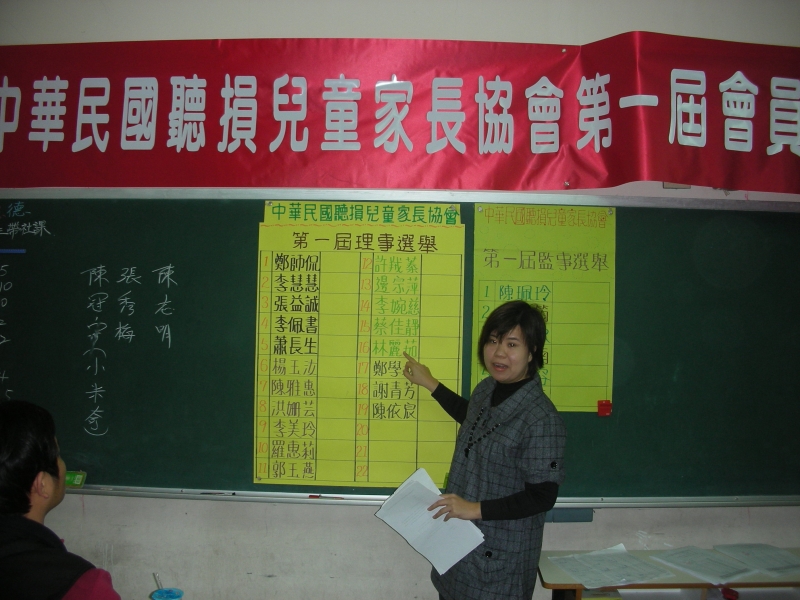 中華民國聽損兒童家長協會第一屆會員
德
陳志明
張秀梅
陳冠宇(小米奇)
中華民國聽損兒童家長協會
第一屆理事選舉
1 鄭帥侃
2 李慧慧
3 張益誠
4 李佩書
5 蕭長生
6 楊玉汝
7 陳雅惠
8 洪姍芸
9 李美玲
10 羅惠莉
11 郭玉燕
12
13 邊宗萍
14 李婉慈
15 蔡佳靜
16 林麗茹
17 鄭學
18 謝青芳
19 陳依宸
20
21
22
中華民國聽損兒童家長協會
第一屆監事選舉
1 陳珮玲
2